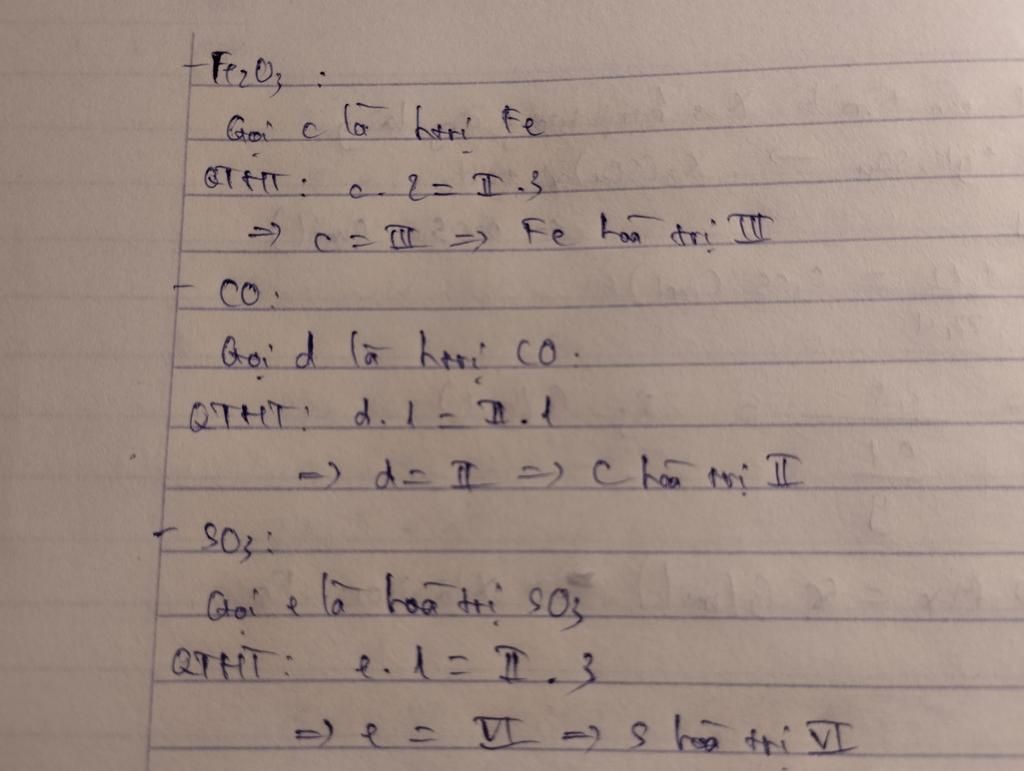 - Fe2O3 :
Gọi c là htrị Fe
QTHT : c. 2 = II .3
=> c = III => Fe hoá trị III
- CO :
Gọi d là htrị CO.
QTHT : d. 1 = II . 1
=> d = II => C hoá trị II
- SO3 :
Gọi e là hoá trị SO3
QTHT : e. 1 = II . 3
=> e = VI => S hoá trị VI